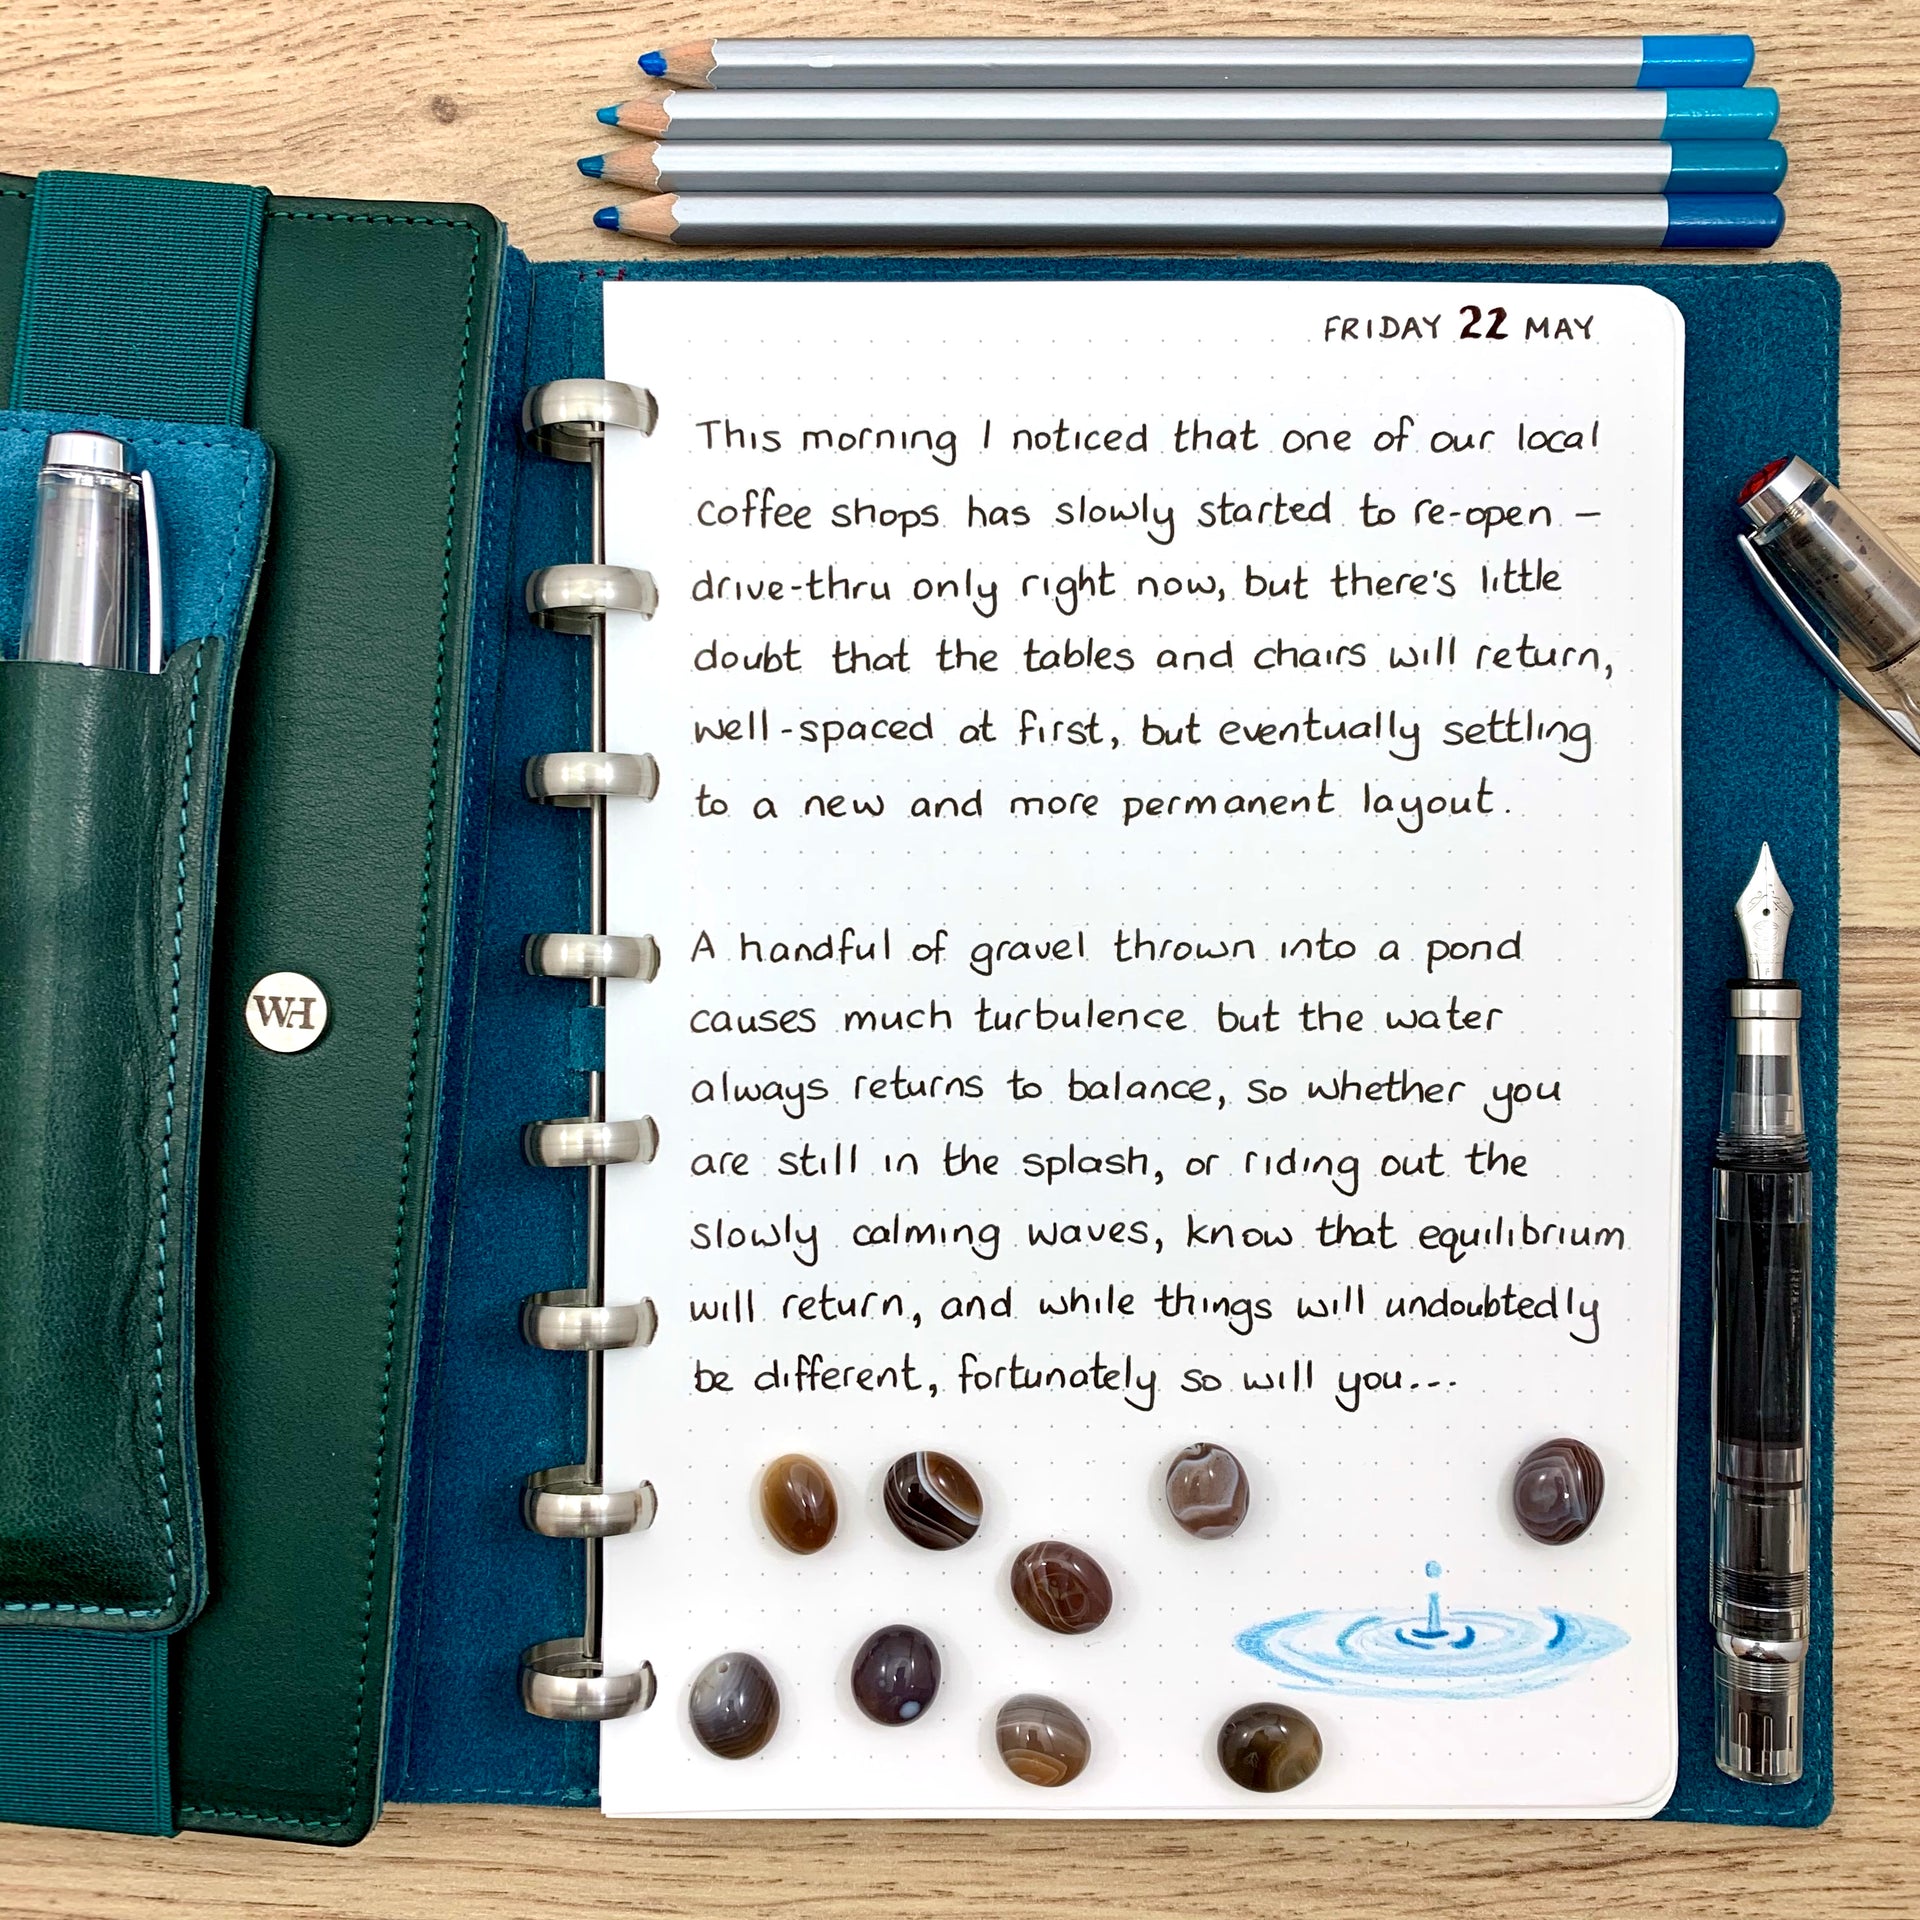 FRIDAY 22 MAY
This morning I noticed that one of our local
coffee shops has slowly started to re-open –
drive-thru only right now, but there's little
doubt that the tables and chairs will return,
well-spaced at first, but eventually settling
to a new and more permanent layout.
A handful of gravel thrown into a pond
causes much turbulence but the water
always returns to balance, so whether you
are still in the splash, or riding out the
slowly calming waves, know that equilibrium
will return, and while things will undoubtedly
be different, fortunately so will you...
WH